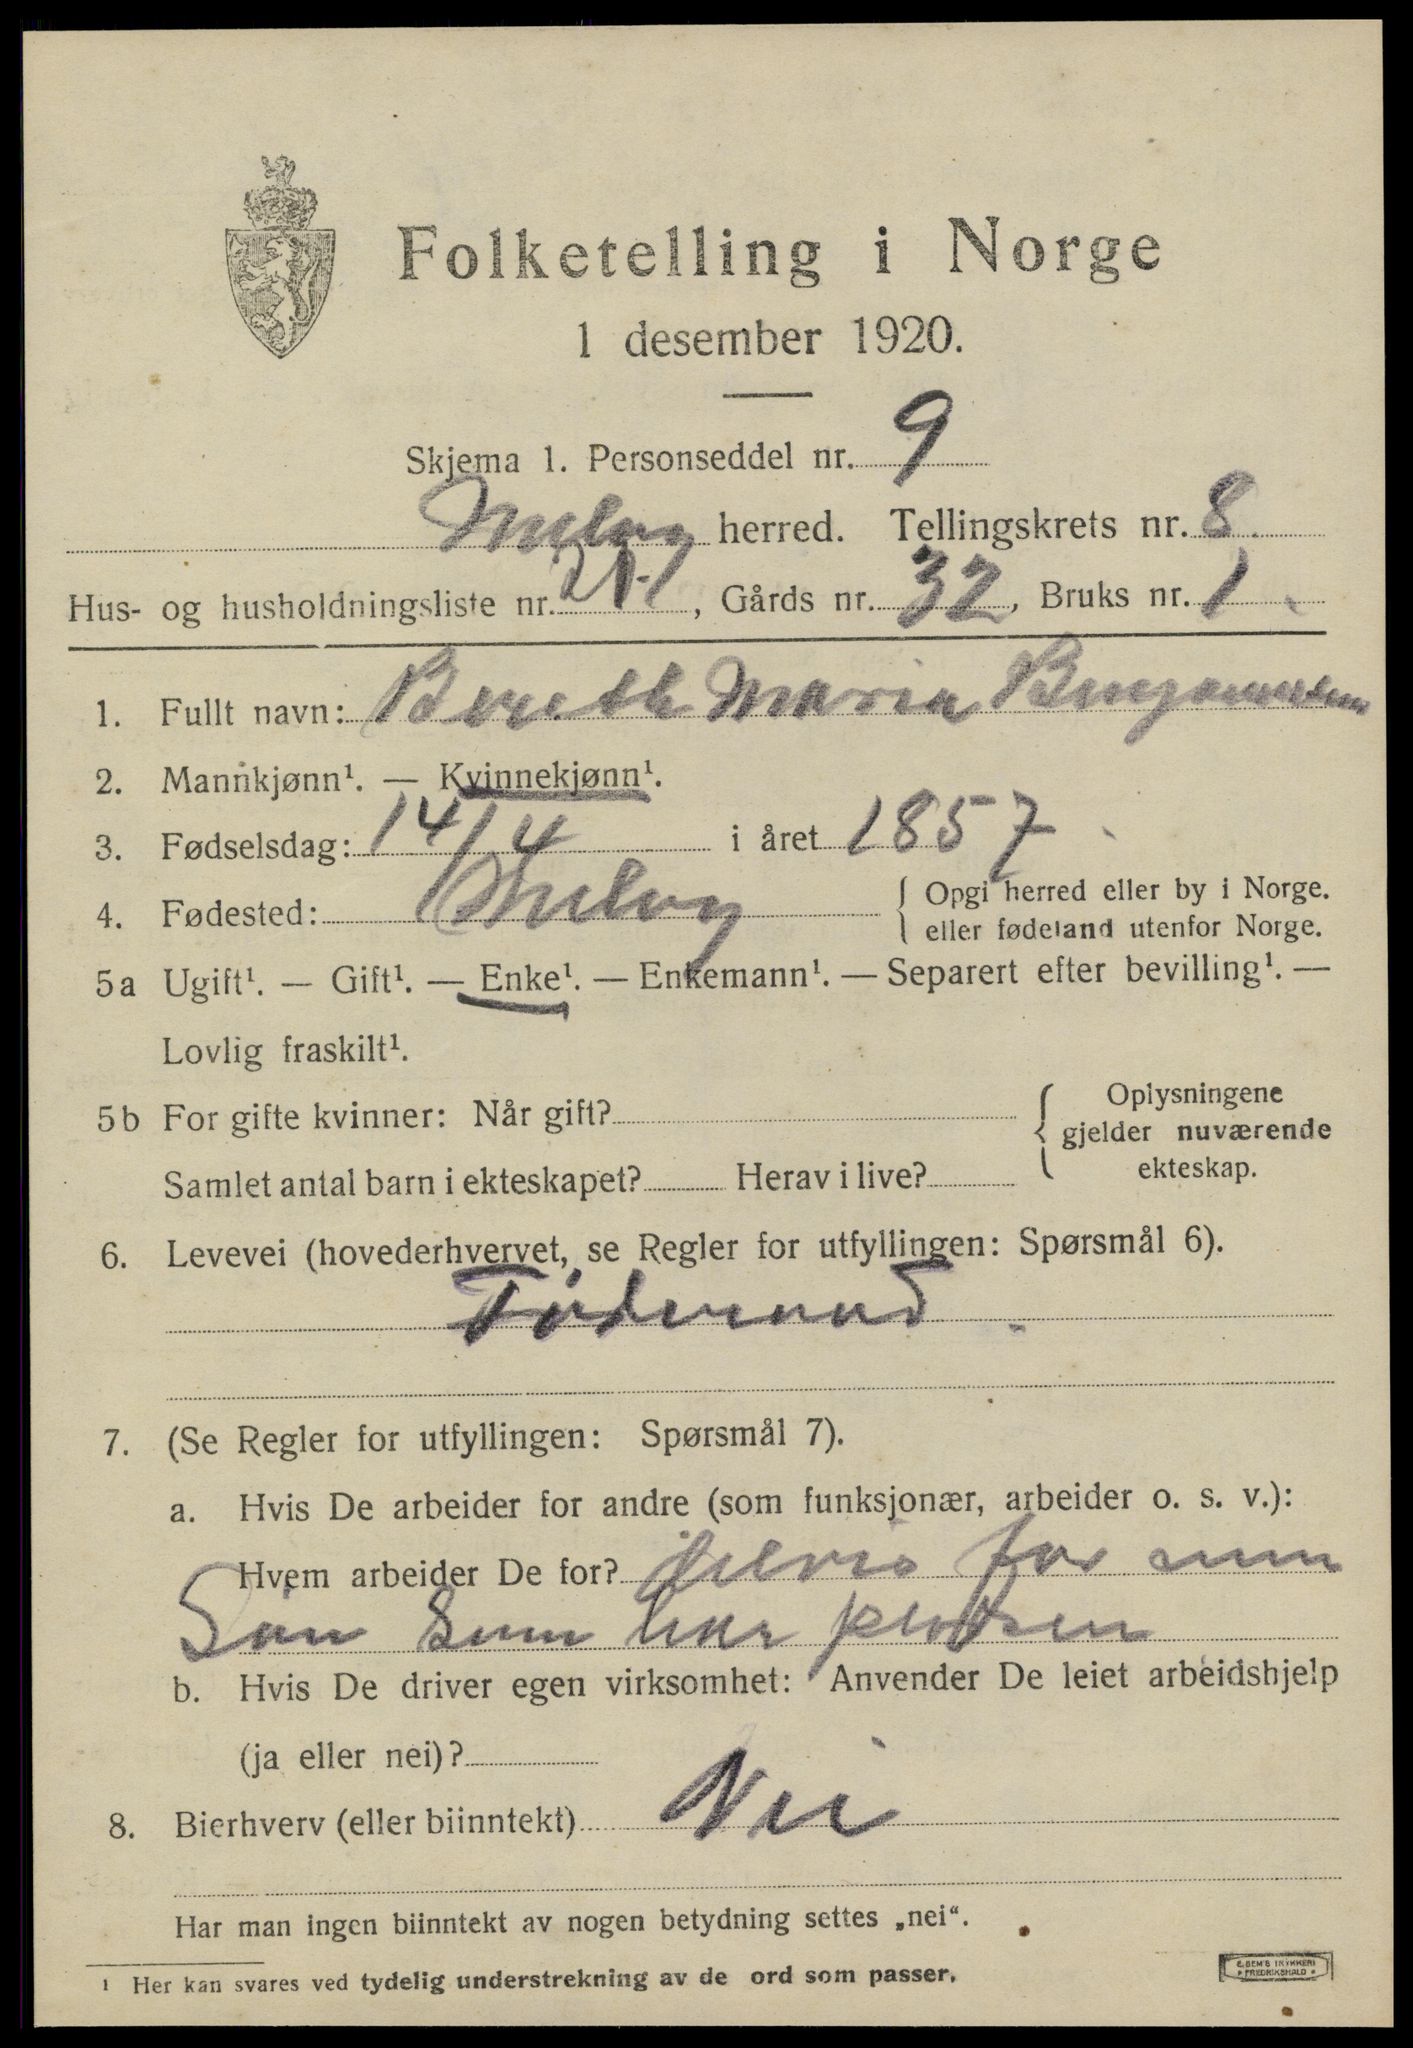 Folketelling i Norge
1 desember 1920.
Skjema 1. Personseddel nr. 9
herred. Tellingskrets nr. 8
Hus- og husholdningsliste nr. , Gårds nr. 32, Bruks nr. 1.
1. Fullt navn: Bereth Maria
2. Mannkjønn¹. — Kvinnekjønn¹.
3. Fødselsdag: 14/4 i året 1857
4. Fødested: { Opgi herred eller by i Norge.
eller fødeland utenfor Norge.
5a Ugift¹. — Gift¹. — Enke¹. — Enkemann¹. — Separert efter bevilling¹. —
Lovlig fraskilt¹.
5b For gifte kvinner: Når gift? { Oplysningene
gjelder nuværende
ekteskap.
Samlet antal barn i ekteskapet? Herav i live?
6. Levevei (hovederhvervet, se Regler for utfyllingen: Spørsmål 6).
7. (Se Regler for utfyllingen: Spørsmål 7).
a. Hvis De arbeider for andre (som funksjonær, arbeider o. s. v.):
Hvem arbeider De for? for min
Søn som har
b. Hvis De driver egen virksomhet: Anvender De leiet arbeidshjelp
(ja eller nei)?
8. Bierhverv (eller biinntekt) Nei
Har man ingen biinntekt av nogen betydning settes „nei“.
¹ Her kan svares ved tydelig understrekning av de ord som passer.
E. SEM'S TRYKKERI
FREDRIKSHALD